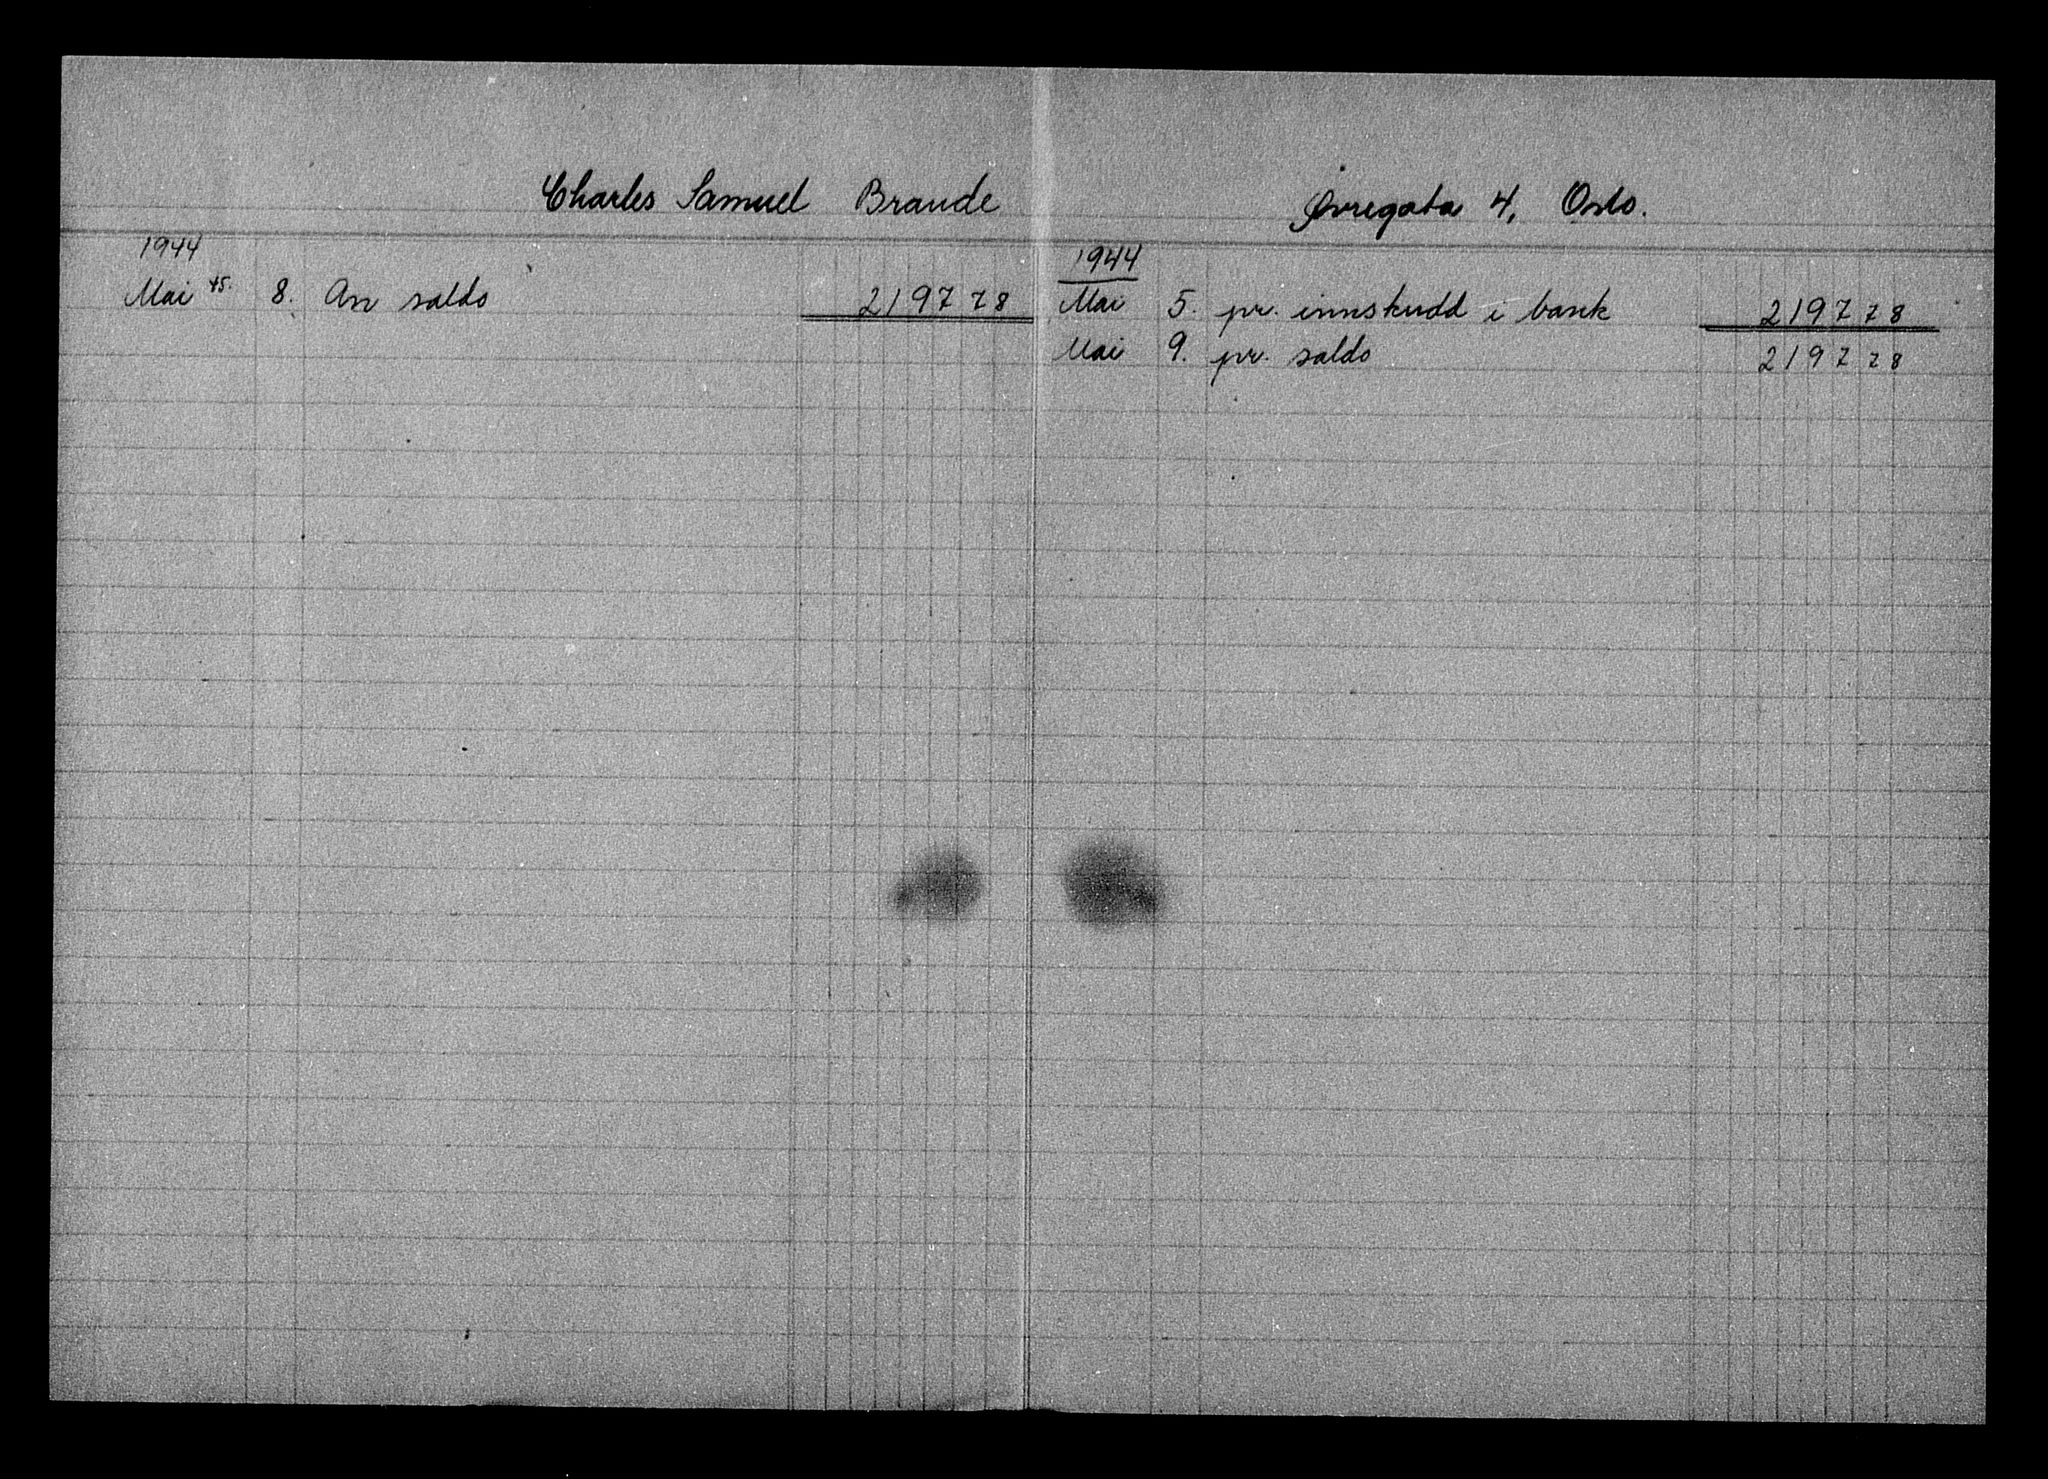 Charles Samuel Braude Øvregata 4, Oslo.
1944
Mai 45. 8. An saldo 2197 78
1944
Mai 5. pr. innskudd i bank 2197 78
Mai 9. pr. saldo 2197 78